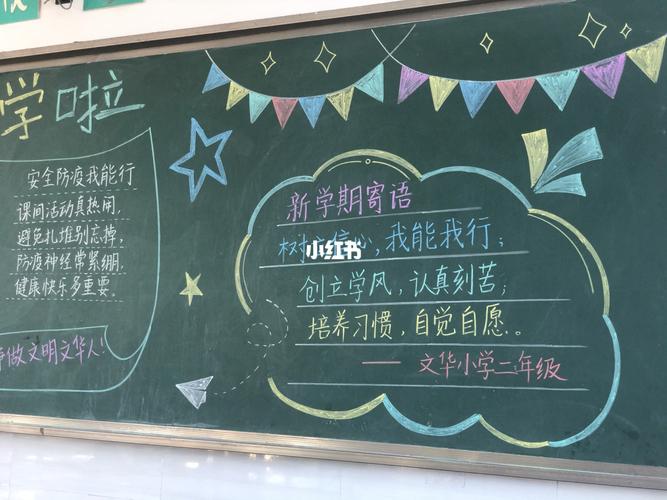 学啦
安全防疫我能行
课间活动真热闹,
避免扎堆别忘掉,
防疫神经常紧绷,
健康快乐多重要.
做文明文华人!
新学期寄语
树 信心,我能我行;
小红书
创立学风,认真刻苦;
培养习惯,自觉自愿。
——文华小学二年级